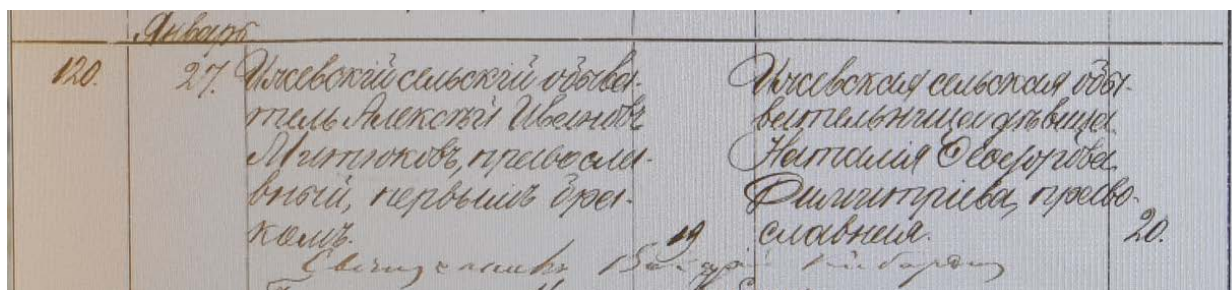 Январь
120.
27.
Ижевскій сельскій обыва-
тель Алексѣй Ивановъ
Митюковъ, правосла-
вный, первымъ бра-
комъ.
19
Ижевская сельская обы-
вательница дѣвица
Наталія Ѳеодорова
Димитріева, право-
славная.
20.
Священникъ